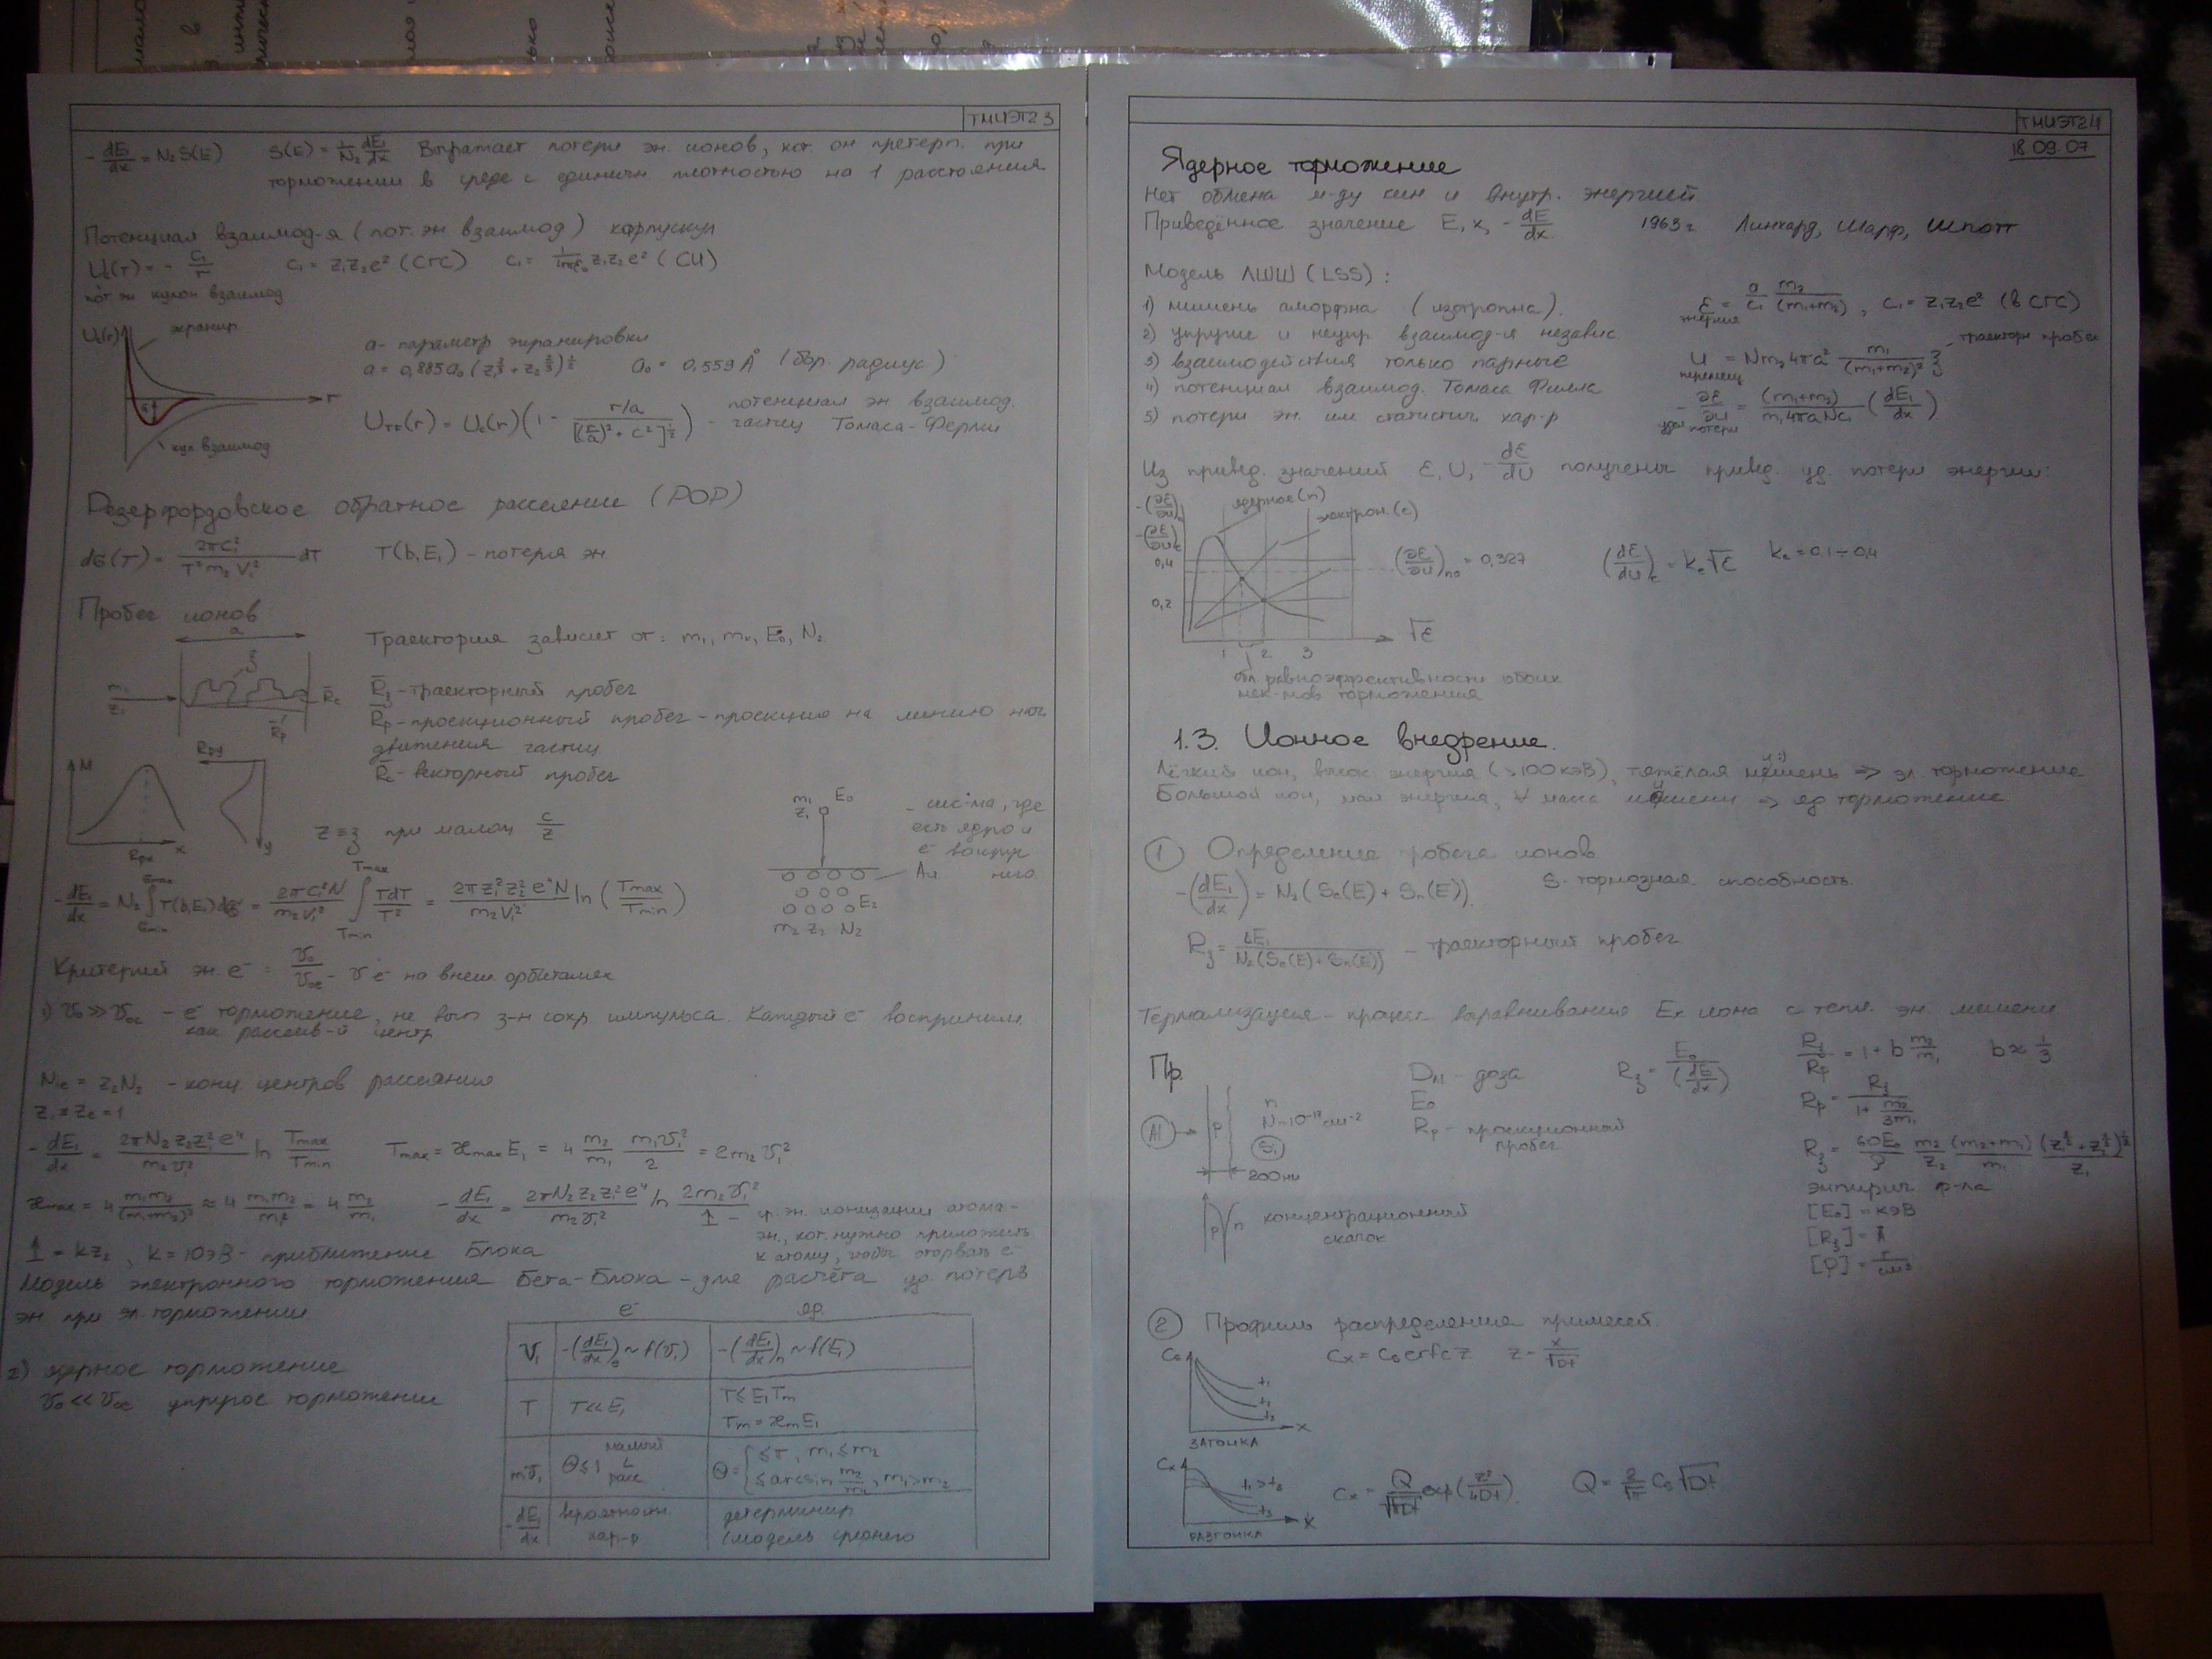 ТМИЭТ2 3
- dE₁/dx = N₂ S(E)   S(E) = 1/N₂ dE₁/dx Выражает потери эн. ионов, кот. он претерп. при
торможении в среде с единичн плотностью на 1 расстояния
Потенциал взаимод-я (пот. эн взаимод) корпускул
U(r) = - C₁/r   C₁ = Z₁Z₂e² (СГС)   C₁ = 1/4πε₀ Z₁Z₂e² (СИ)
пот. эн кулон взаимод
U(r)
экранир
r
кул взаимод
a - параметр экранировки
a = 0,885a₀ (Z₁^⅔ + Z₂^⅔)^½   a₀ = 0,559 Å (бор. радиус)
U_TF(r) = U_c(r)(1 - r/a / [(r/a)² + C²]^½) - потенциал эн взаимод.
частиц Томаса-Ферми
Резерфордовское обратное рассеяние (РОР)
dσ(T) = 2πC₁² / T²m₂V₁² dT   T(b, E₁) - потеря эн
Пробег ионов
a
m₁
Z₁
ξ
R̄c
R̄p
Траектория зависит от: m₁, mк, E₀, N₂
R̄ξ - траекторный пробег
R̄p - проекционный пробег - проекция на линию нач
движения частиц
R̄c - векторный пробег
M
Rpx
x
Rpy
y
z ≡ ξ при малом c/z
m₁
Z₁
E₀
- сис-ма, где
есть ядро и
e⁻ вокруг
него
E₂
m₂ Z₂ N₂
- dE₁/dx = N₂ ∫ T(b, E₁) dσ = 2πC₁²N / m₂V₁² ∫ TdT/T² = 2πZ₁²Z₂²e⁴N / m₂V₁² ln (Tmax/Tmin)
Критерий эн. e⁻ = v₀/v₀e - v e⁻ на внеш орбиталях
1) v₀ >> v₀e - e⁻ торможение, не вып з-н сохр импульса. Каждый e⁻ восприним.
как рассеив-й центр
N₁e = Z₂N₂ - конц центров рассеяния
Z₁ = Ze = 1
- dE₁/dx = 2πN₂Z₂Z₁²e⁴ / m₂v₁² ln Tmax/Tmin   Tmax = æmax E₁ = 4 m₂/m₁ m₁v₁²/2 = 2m₂v₁²
æmax = 4 m₁m₂/(m₁+m₂)² ≈ 4 m₁m₂/m₁² = 4 m₂/m₁   - dE₁/dx = 2πN₂Z₂Z₁²e⁴ / m₂v₁² ln 2m₂v₁²/I - ср. эн. ионизации атома -
эн., кот. нужно приложить
к атому, чтобы оторвать e⁻
I = kZ₂, k = 10эВ - приближение Блоха
Модель электронного торможения Бета-Блоха - для расчёта уд. потерь
эн при эл. торможении
2) ядерное торможение
v₀ << v₀e упругое торможение
e⁻   яр.
v₁   -(dE₁/dx)e ~ f(v₁)   -(dE₁/dx)n ~ f(E₁)
T   T << E₁   T ≤ E₁Tm
Tm = æmE₁
mv₁   Θ ≤ 1 малый ∠ расс   Θ = { ≤ π, m₁ ≤ m₂
≤ arcsin m₂/m₁, m₁ > m₂
- dE₁/dx   вероятностн. хар-р   детерминир
(модель среднего
ТМИЭТ2 4
18.09.07
Ядерное торможение
Нет обмена м-ду кин и внутр. энергией
Приведённое значение E, x, - dE/dx   1963г. Линхард, Шарф, Шпотт
Модель ЛШШ (LSS):
1) мишень аморфна (изотропна).
2) упругие и неупр. взаимод-я независ.
3) взаимодействия только парные
4) потенциал взаимод. Томаса Фирма
5) потери эн. им статистич хар-р
ε = a/C₁ m₂/(m₁+m₂), C₁ = Z₁Z₂e² (в СГС)
энергия
U = Nm₂4πa² m₁/(m₁+m₂)² ξ - траекторн пробег
перемещ
- ∂ε/∂u = (m₁+m₂)/m₁4πaNC₁ (dE₁/dx)
удел потери
Из привед. значений ε, U, - dε/dU получены привед. уд. потери энергии:
-(∂ε/∂u)n
-(∂ε/∂u)e
ядерное (n)
электрон. (e)
0,4
0,2
1 2 3
√ε
(∂ε/∂u)n0 = 0,327   (dε/du)e = ke√ε   ke = 0,1÷0,4
обл. равноэффективности обоих
мех-мов торможения
1.3. Ионное внедрение.
Лёгкий ион, высок. энергия (>100кэВ), тяжёлая мишень ⇒ эл. торможение
Большой ион, мал энергия, ∀ масс мишени ⇒ яд торможение
① Определение пробега ионов
-(dE₁/dx) = N₂(Se(E) + Sn(E)).   S - тормозная способность.
Rξ = dE₁ / N₂(Se(E) + Sn(E)) - траекторный пробег
Термализация - процесс выравнивания Eк иона с тепл. эн. мишени
Пр.
Al
p
n
N=10⁻¹⁷см⁻²
Si
200нм
Dᵢ - доза
E₀
Rp - проекционный
пробег
Rξ = E₀/(dE/dx)
Rξ/Rp = 1 + b m₂/m₁   b ≈ 1/3
Rp = Rξ / 1 + m₂/3m₁
Rξ = 60E₀/ρ m₂/Z₂ (m₂+m₁)/m₁ (Z₁^⅔ + Z₂^⅔)^½/Z₁
эмпирич. ф-ла
[E₀] = кэВ
[Rξ] = Å
[ρ] = г/см³
p n концентрационный
скачок
② Профиль распределения примесей.
Cₓ = C₀ erfc z   z = x/√Dt
C₀
t₁
t₂
x
ЗАГОНКА
Cₓ
t₁ > t₂
t₃
x
РАЗГОНКА
Cₓ = Q/√πDt exp(z²/4Dt).   Q = 2/√π C₀√Dt